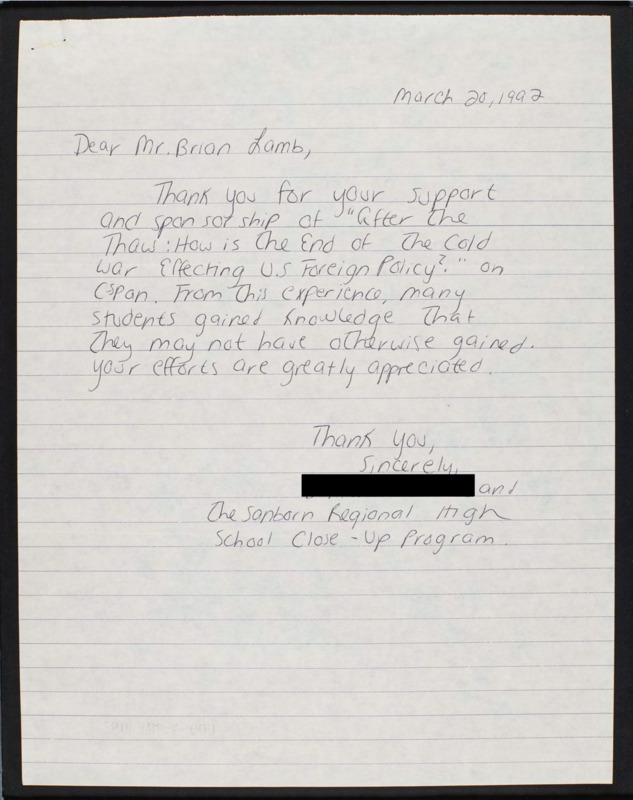 March 20, 1992
Dear Mr. Brian Lamb,
Thank you for your support
and sponsorship of "After the
Thaw: How is the End of the Cold
war Effecting U.S Foreign Policy?" on
CSpan. From this experience, many
students gained knowledge that
they may not have otherwise gained.
your efforts are greatly appreciated.
Thank you,
Sincerely,
and
The Sanborn Regional High
School Close-Up Program.